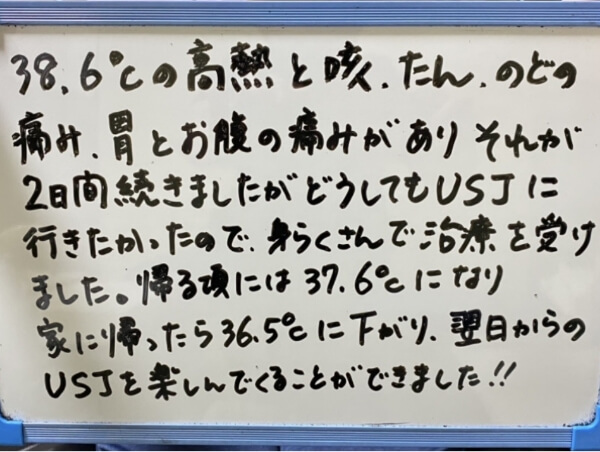 38.6℃の高熱と咳、たん、のどの
痛み、胃とお腹の痛みがありそれが
2日間続きましたがどうしてもUSJに
行きたかったので、身らくさんで治療を受け
ました。帰る頃には37.6℃になり
家に帰ったら36.5℃に下がり、翌日からの
USJを楽しんでくることができました!!